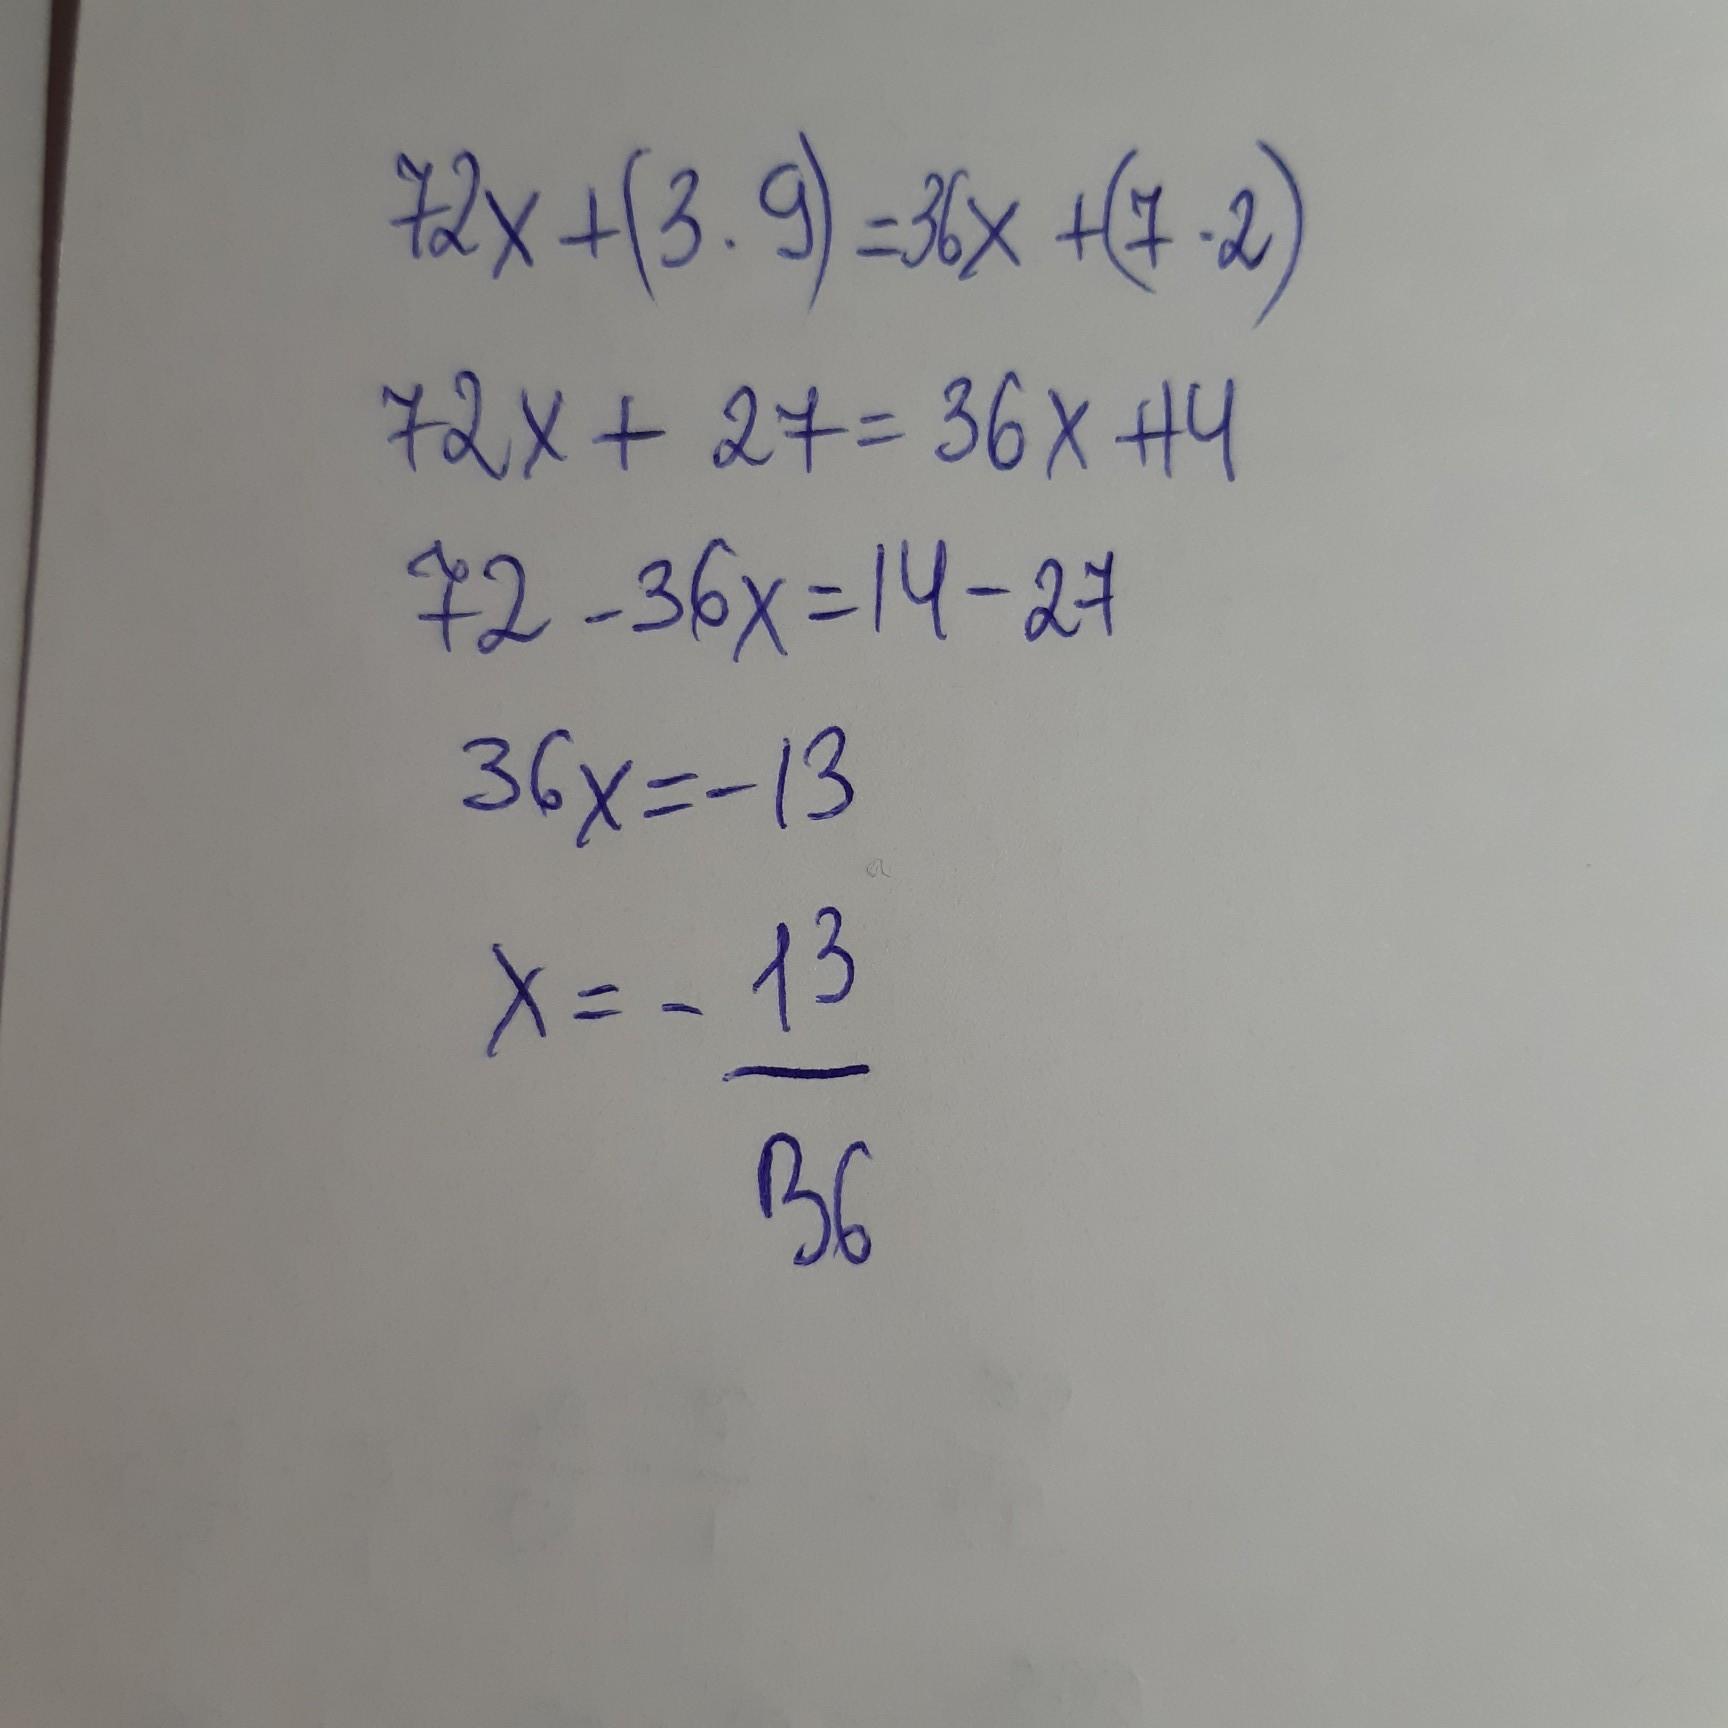 72x + (3 . 9) = 36x + (7 . 2)
72x + 27 = 36x + 14
72 - 36x = 14 - 27
36x = - 13
x = - 13
36